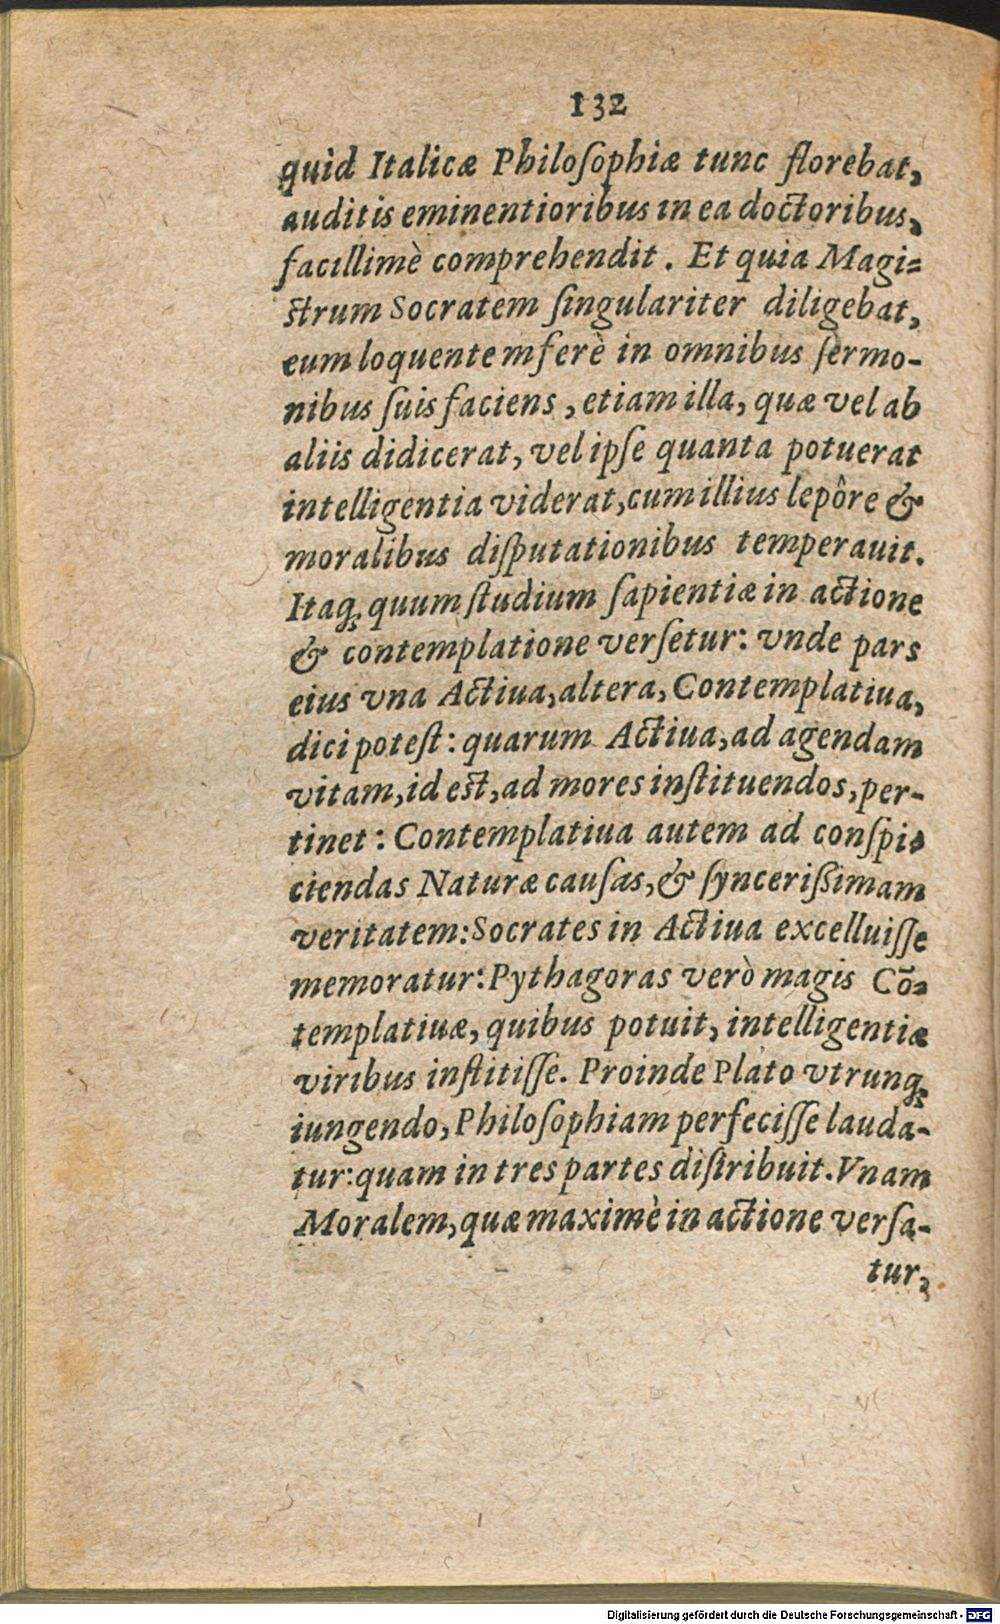 132
quid Italicæ Philoſophiæ tunc florebat,
auditis eminentioribus in ea doctoribus,
facillimè comprehendit. Et quia Magi=
ſtrum Socratem ſingulariter diligebat,
eum loquentem ferè in omnibus ſermo-
nibus ſuis faciens, etiam illa, quæ vel ab
aliis didicerat, vel ipſe quanta potuerat
intelligentia viderat, cum illius lepôre &
moralibus diſputationibus temperauit.
Itaq; quum ſtudium ſapientiæ in actione
& contemplatione verſetur: vnde pars
eius vna Actiua, altera, Contemplatiua,
dici poteſt: quarum Actiua, ad agendam
vitam, id eſt, ad mores inſtituendos, per-
tinet: Contemplatiua autem ad conſpi-
ciendas Naturæ cauſas, & ſynceriſſimam
veritatem: Socrates in Actiua excelluiſſe
memoratur: Pythagoras verò magis Cō=
templatiuæ, quibus potuit, intelligentiæ
viribus inſtitiſſe. Proinde Plato vtrunq;
iungendo, Philoſophiam perfeciſſe lauda-
tur: quam in tres partes diſtribuit. Vnam
Moralem, quæ maximè in actione verſa-
tur,
Digitalisierung gefördert durch die Deutsche Forschungsgemeinschaft - DFG